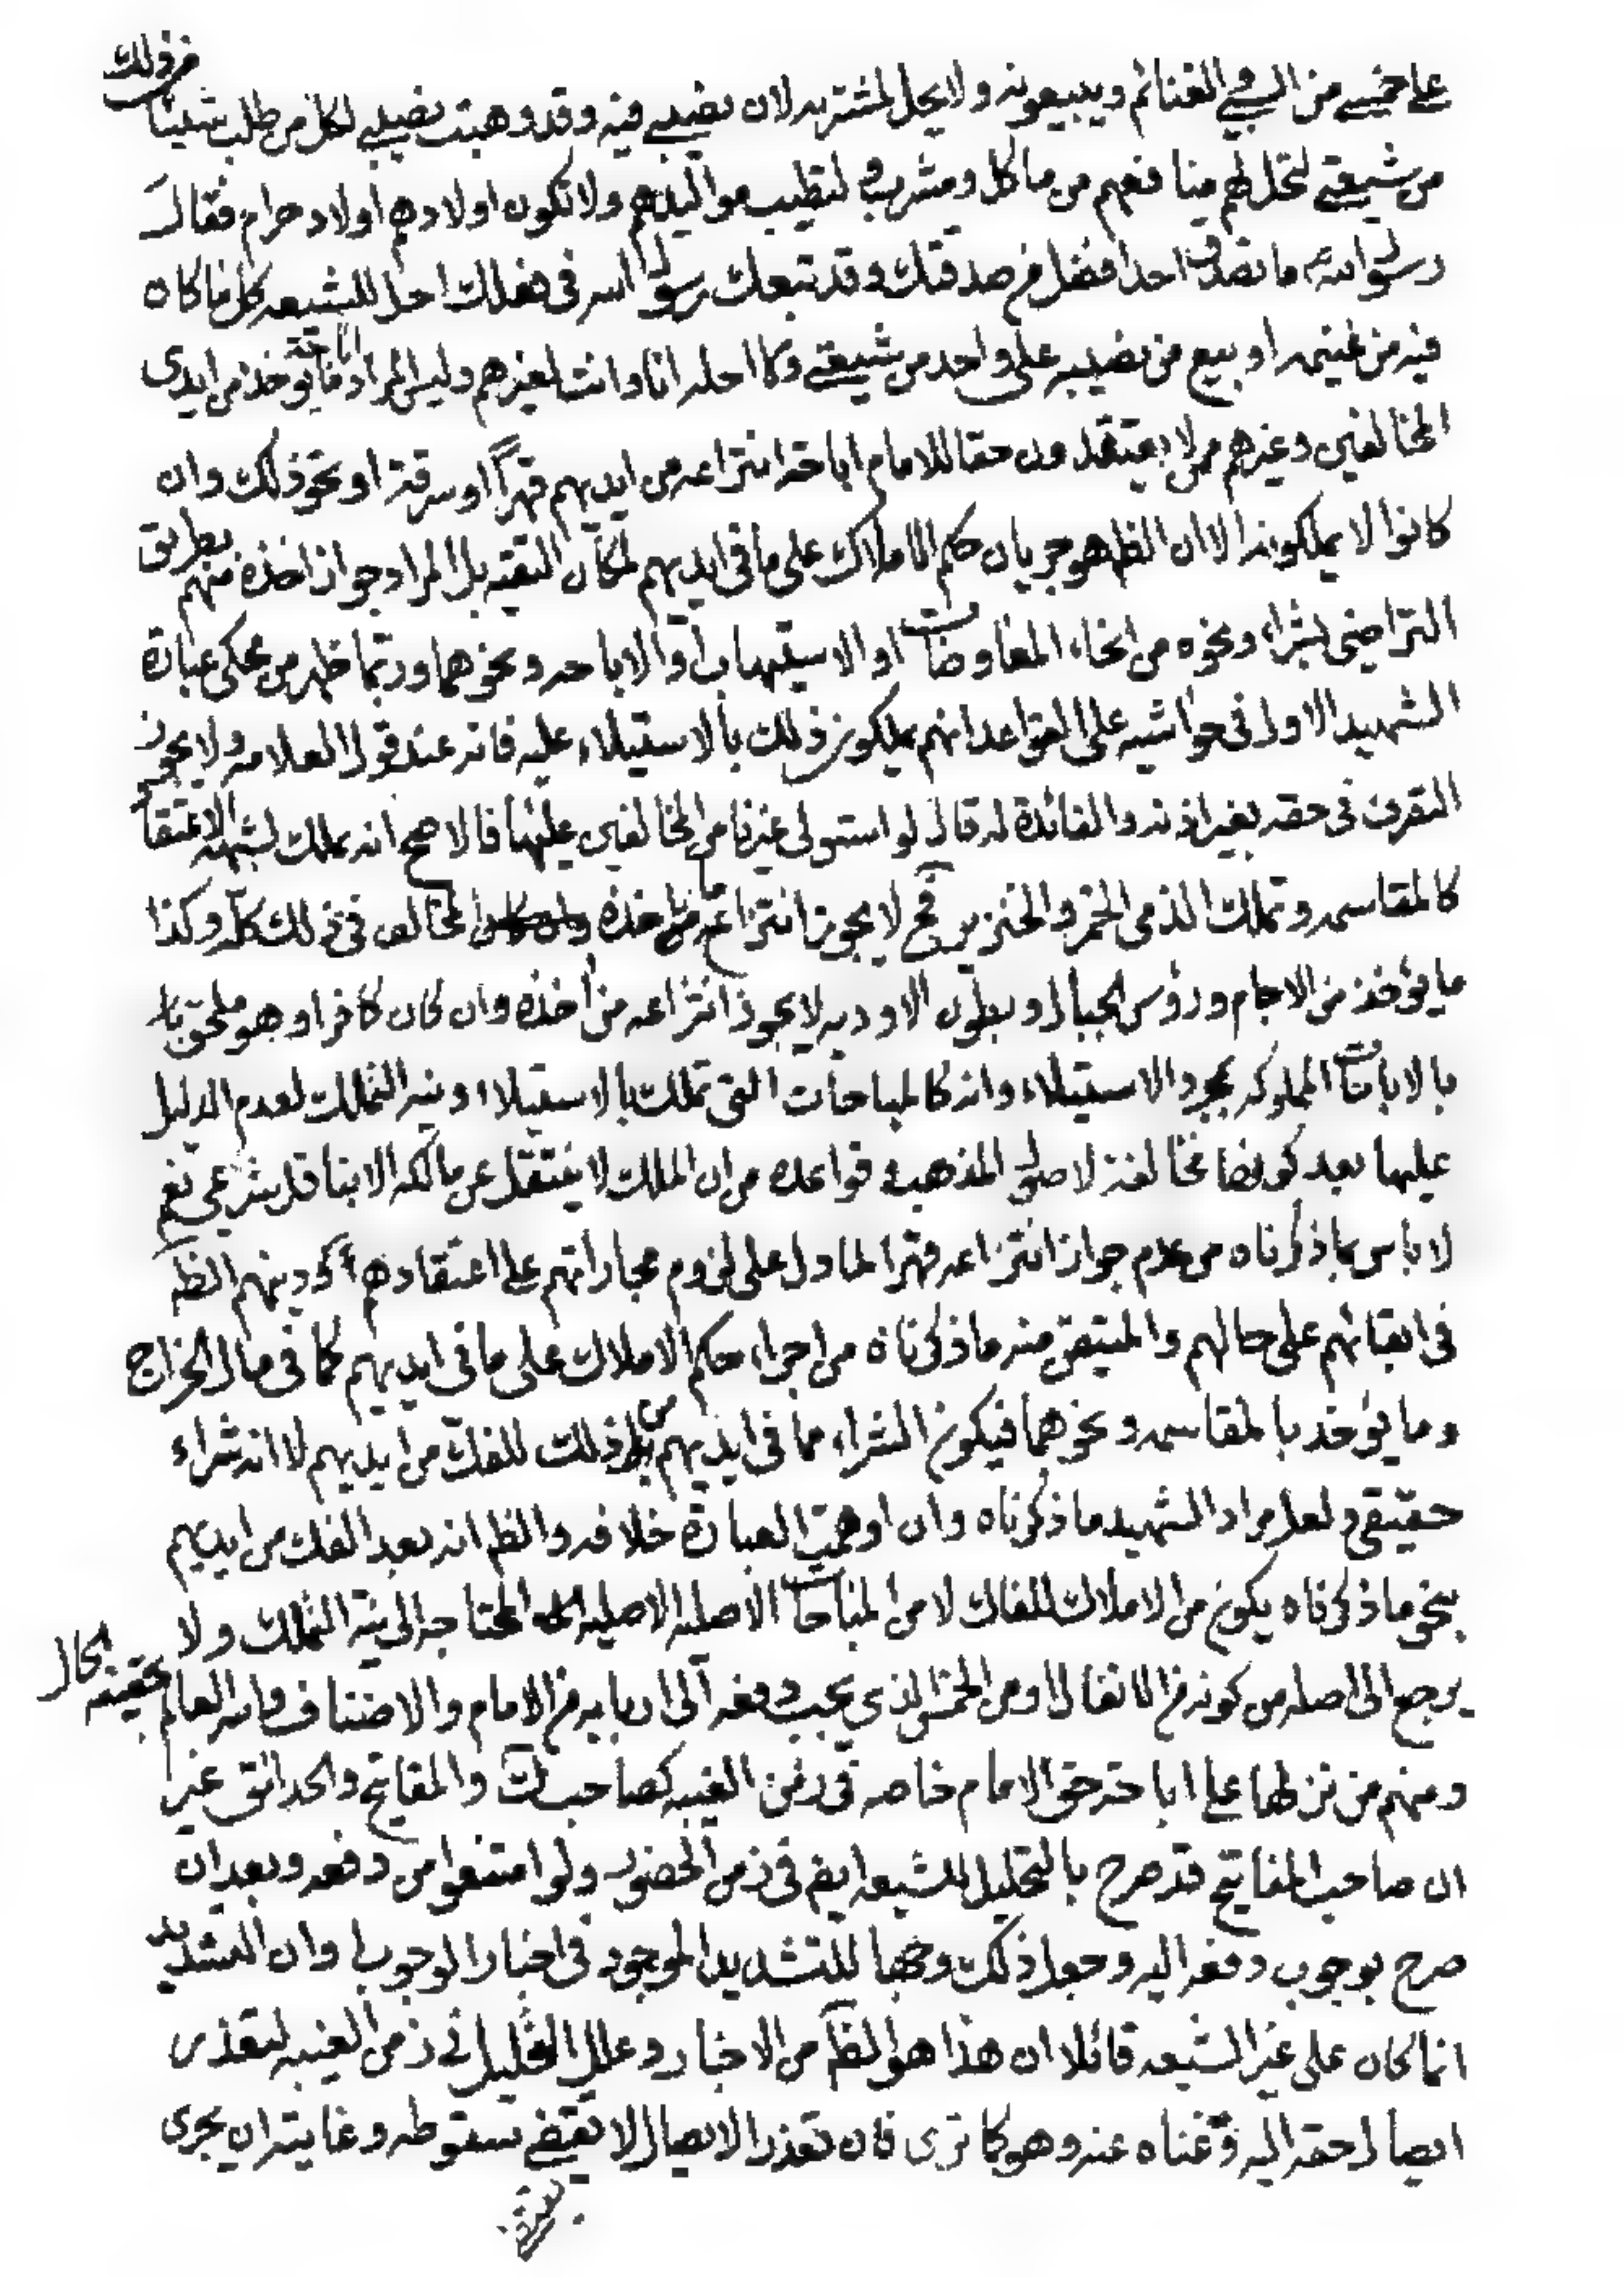 على خمسي من السبي والغنائم ويبيعونه ولا يحل لمشتريه لان نصيبي فيه وقد وهبت نصيبي لكل من ملك شيئا من ذلك
من شيعتي لتحل لهم منافعهم من ماكل ومشرب ولتطيب مواليدهم ولا تكون اولادهم اولاد حرام فقال
رسول الله ما تصدق احد افضل من صدقتك وقد تبعك رسول الله في فعلك احل للشيعه كل ما كان
فيه من غنيمه او بيع من نصيبه على واحد من شيعتي ولا احلها انا وانت لغيرهم وليس المراد اباحة ما يوخذ من ايدي
المخالفين وغيرهم ممن لا يعتقدون حقا للامام اباحة انتزاعه من ايديهم قهراً او سرقة او نحو ذلك وان
كانوا لا يملكونه الا ان الظ هو جريان حكم الاملاك على ما في ايديهم لمكان التقيه بل المراد جواز اخذه منهم بطريق
التراضي بشراء ونحوه من انحاء المعاوضات او الاستيهاب او الاباحه ونحوهما وربما ظهر من محكي عبارة
الشهيد الاول في حواشيه على القواعد انهم يملكون ذلك بالاستيلاء عليه فانه عند قول العلامه ولا يجوز
التصرف في حقه بغير اذنه والفائدة له قال لو استولى غيرنا من المخالفين عليها فالاصح انه يملك لشبهة الاعتقاد
كالمقاسمه وتملك الذمي الخمر والخنزير فح لا يجوز انتزاع ما ياخذه المخالف في ذلك كله وكذا
ما يؤخذ من الاجام ورؤس الجبال وبطون الاوديه لا يجوز انتزاعه من أخذه وان كان كافرا وهو ملحق با
بالاباحات المملوكه بمجرد الاستيلاء وانه كالمباحات التي تملك بالاستيلاء ونية التملك لعدم الدليل
عليها بعد كونها مخالفة لاصول المذهب وقواعده من ان الملك لا ينتقل عن مالكه الا بناقل شرعي نعم
لا باس بما ذكرناه من عدم جواز انتزاعه قهرا لما دل على لزوم مجاراتهم على اعتقادهم ودينهم الظ
في ابقائهم على حالهم والمتيقن منه ما ذكرناه من اجراء حكم الاملاك على ما في ايديهم كما في مال الخراج
وما يؤخذ بالمقاسمه ونحوهما فيكون الشراء مما في ايديهم من ذلك للفك من ايديهم لا انه شراء
حقيقي ولعل مراد الشهيد ما ذكرناه وان اوهمت العبارة خلافه والظ انه بعد الفك من ايديهم
بنحو ما ذكرناه يكون من الاملاك للفاك لا من المباحات الاصليه الاصليه المحتاجه الى نية التملك ولا
يرجع الى اصله من كونه من الانفال او من الخمس الذي يجب دفعه الى اربابه من الامام والاصناف والله العالم بحقيقة الحال
ومنهم من نزلها على اباحة حق الامام خاصه في زمن الغيبه كصاحب ك والمفاتيح والحدائق غير
ان صاحب المفاتيح قد صرح بالتحليل للشيعه ايض في زمن الحضور ولو امتنعوا من دفعه وبعد ان
صرح بوجوب دفعه اليه وجعل ذلك وجها للتشديد الموجود في اخبار الوجوب وان التشديد
انما كان على غير الشيعه قائلا ان هذا هو الظ من الاخبار وعلل التحليل في زمن الغيبه لتعذر
ايصال حقه اليه وغناه عنه وهو كما ترى فان تعذر الايصال لا يقتضي سقوطه وغايته ان يجري